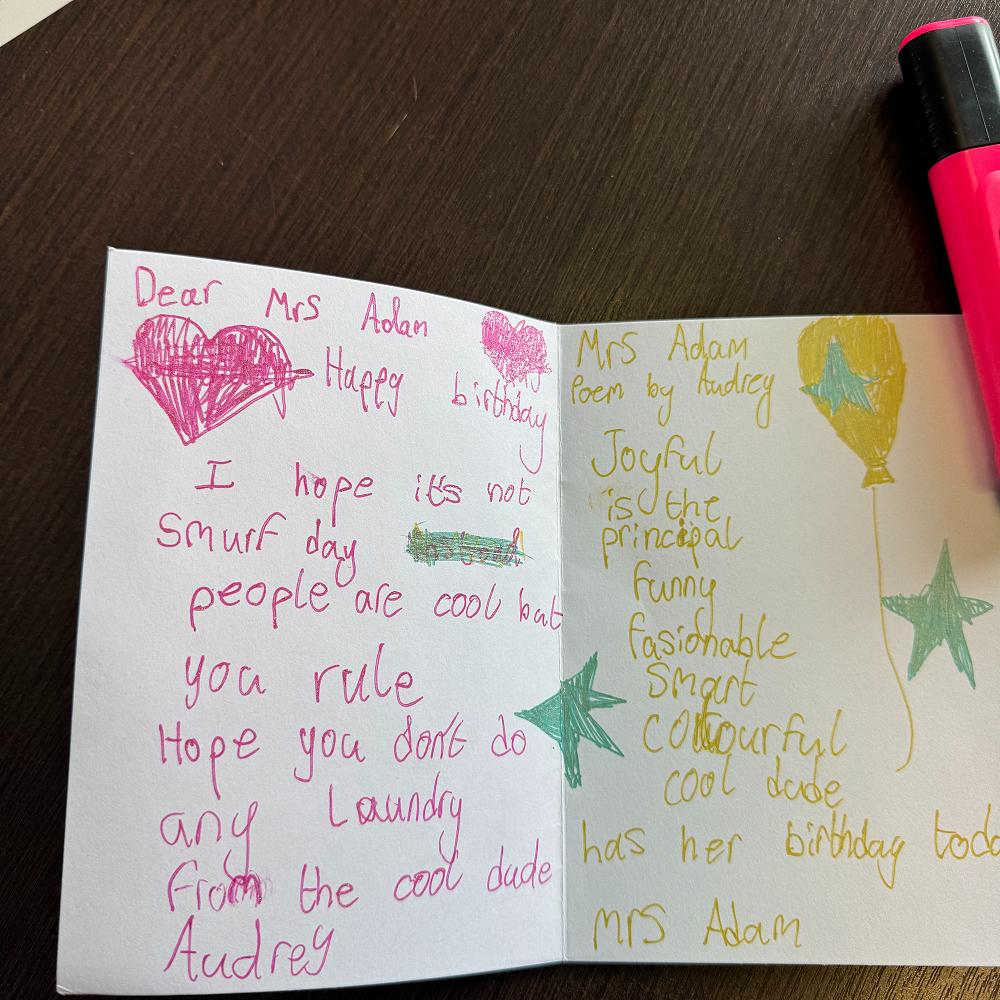 Dear Mrs Adam
Happy birthday
I hope it's not
Smurf day
people are cool but
you rule
Hope you don't do
any Laundry
from the cool dude
Audrey
Mrs Adam
Poem by Audrey
Joyful
is the
principal
funny
fasionable
Smart
colourful
cool dude
has her birthday toda
Mrs Adam